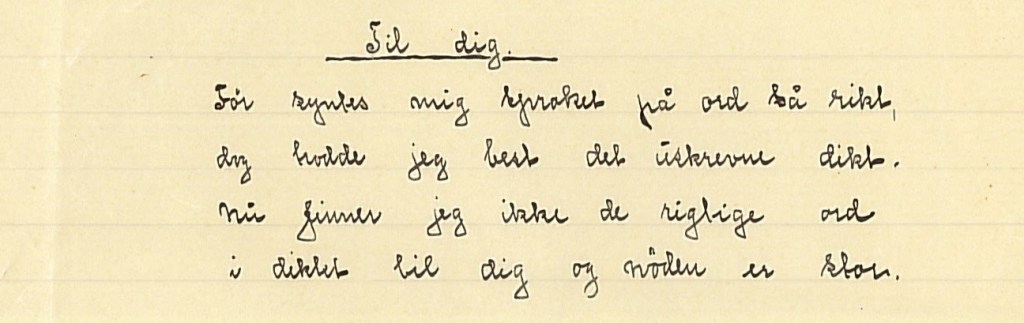 Til dig.
För syntes mig sproket på ord så rikt,
dog trodde jeg best det uskrevne dikt.
Nu finner jeg ikke de rigtige ord
i diktet til dig og nöden er stor.